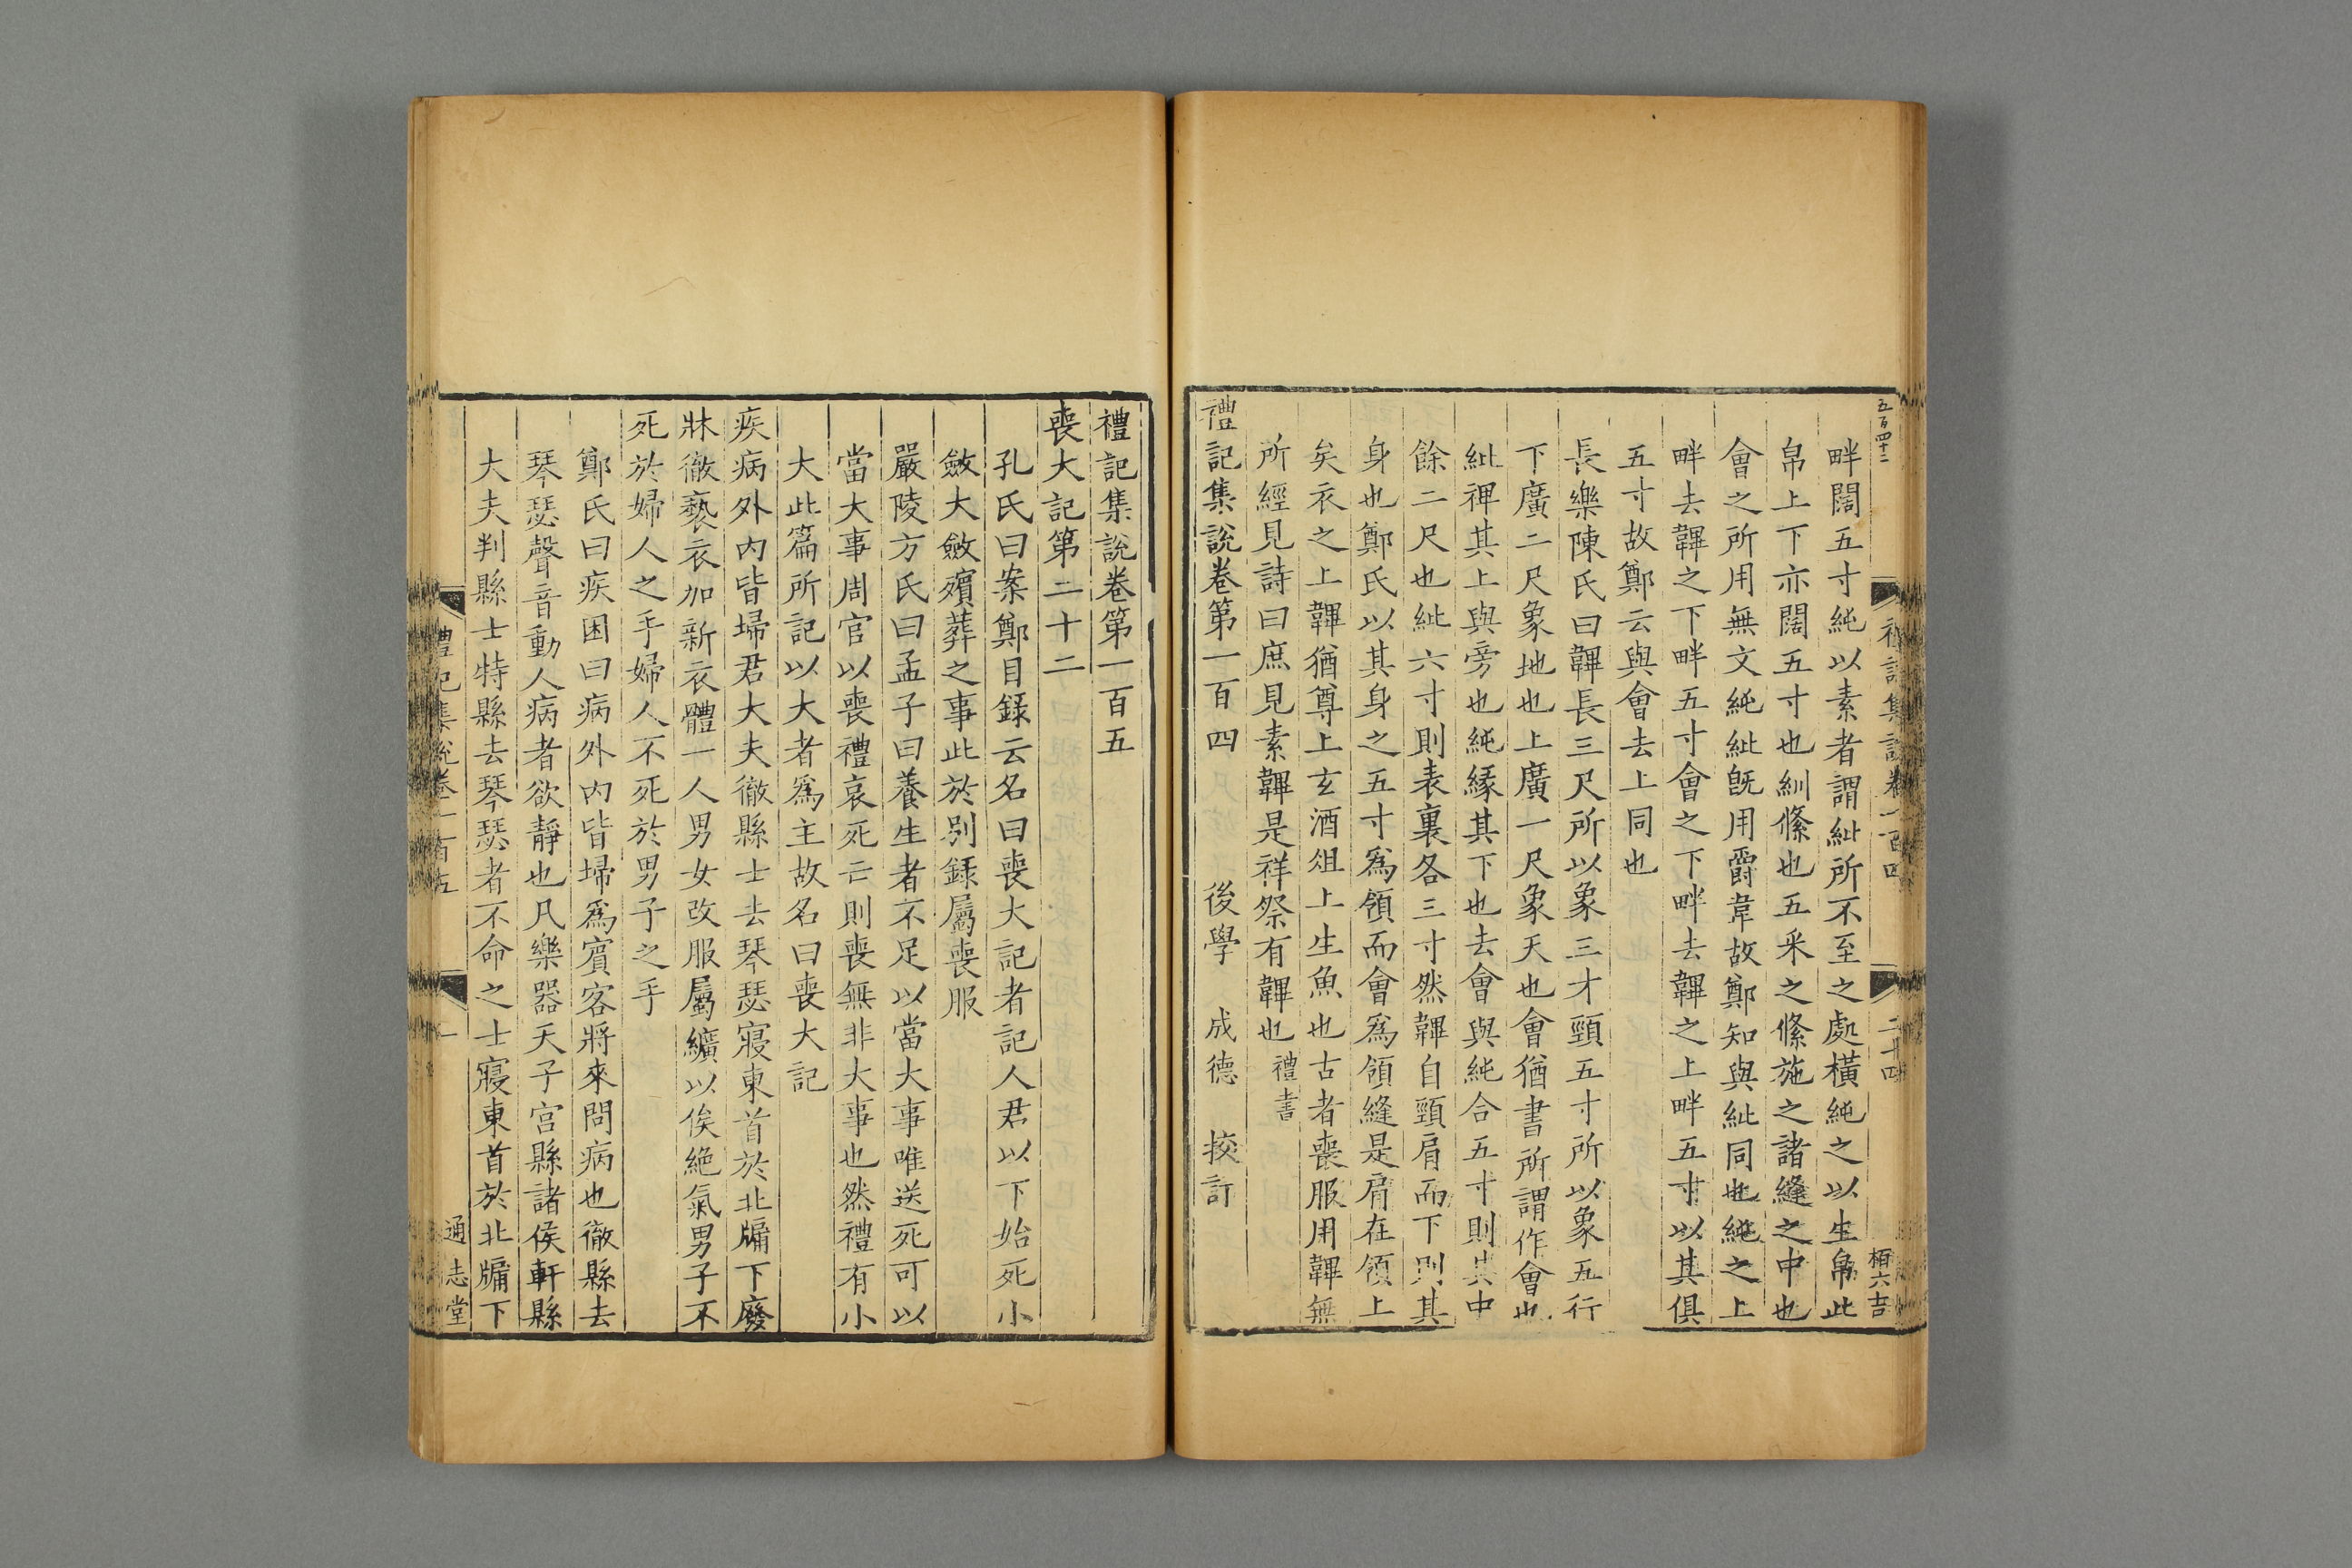 五百四十二
畔闊五寸純以素者謂紕所不至之處橫純之以生帛此
帛上下亦闊五寸也紃絛也五采之絛施之諸縫之中也
會之所用無文純紕旣用爵韋故鄭知與紕同也純之上
畔去韠之下畔五寸會之下畔去韠之上畔五寸以其俱
五寸故鄭云與會去上同也
長樂陳氏曰韠長三尺所以象三才頸五寸所以象五行
下廣二尺象地也上廣一尺象天也會猶書所謂作會也
紕裨其上與旁也純緣其下也去會與純合五寸則其中
餘二尺也紕六寸則表裏各三寸然韠自頸肩而下則其
身也鄭氏以其身之五寸爲領而會爲領縫是肩在領上
矣衣之上韠猶尊上玄酒俎上生魚也古者喪服用韠無
所經見詩曰庶見素韠是祥祭有韠也禮書
禮記集說卷第一百四 後學 成德 挍訂
禮記集說卷一百四 二十四 栢六吉
禮記集說卷第一百五
喪大記第二十二
孔氏曰案鄭目錄云名曰喪大記者記人君以下始死小
斂大斂殯葬之事此於別錄屬喪服
嚴陵方氏曰孟子曰養生者不足以當大事唯送死可以
當大事周官以喪禮哀死亡則喪無非大事也然禮有小
大此篇所記以大者爲主故名曰喪大記
疾病外內皆埽君大夫徹縣士去琴瑟寢東首於北牖下廢
牀徹褻衣加新衣體一人男女改服屬纊以俟絕氣男子不
死於婦人之手婦人不死於男子之手
鄭氏曰疾困曰病外內皆埽爲賓客將來問病也徹縣去
琴瑟聲音動人病者欲靜也凡樂器天子宮縣諸侯軒縣
大夫判縣士特縣去琴瑟者不命之士寢東首於北牖下
禮記集說卷一百五 一 通志堂